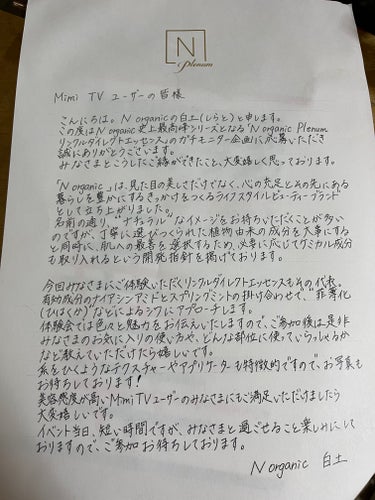 N
Plenum
Mimi TV ユーザーの皆様
こんにちは。N organicの白土(しらと)と申します。
この度はN organic史上最高峰シリーズとなる「N organic Plenum
リンクルダイレクトエッセンス」のガチモニター企画に応募いただき
誠にありがとうございます。
みなさまとこうしたご縁ができたこと、大変嬉しく思っております。
「N organic」は、見た目の美しさだけでなく、心の充足とその先にある
暮らしを豊かにするきっかけをつくるライフスタイルビューティーブランド
として立ち上がりました。
名前の通り、"ナチュラル"なイメージをお持ちいただくことが多い
のですが、丁寧に選びぬかれた植物由来の成分を大事にする
と同時に、肌への最善を選択するため、必要に応じてケミカル成分
も取り入れるという開発指針を掲げております。
今回みなさまにご体験いただくリンクルダイレクトエッセンスもその代表。
有効成分のナイアシンアミドとスプリングミントの掛け合わせで、"菲薄化
(ひはくか)"などによるシワにアプローチします。
体験会では色々と魅力をお伝えいたしますので、ご参加後は是非
みなさまのお気に入りの使い方や、どんな部位に使っていらっしゃるか
など教えていただけたら嬉しいです。
糸をひくようなテクスチャーやアプリケーターも特徴的ですので、お写真も
お待ちしております!
美容感度が高いMimi TVユーザーのみなさまにもご満足いただけましたら
大変嬉しいです。
イベント当日、短い時間ですが、みなさまと過ごせること楽しみにして
おりますので、ご参加お待ちしております。
N organic 白土